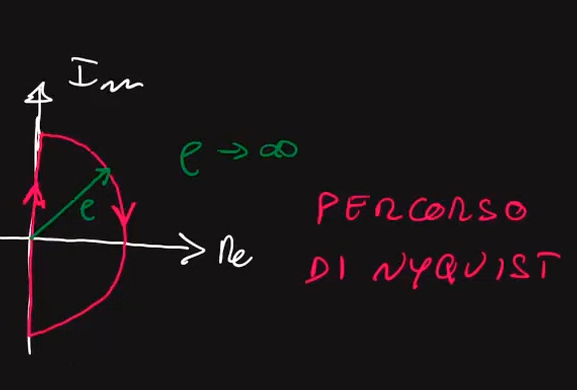 Im
ρ → ∞
ρ
Re
PERCORSO
DI NYQUIST